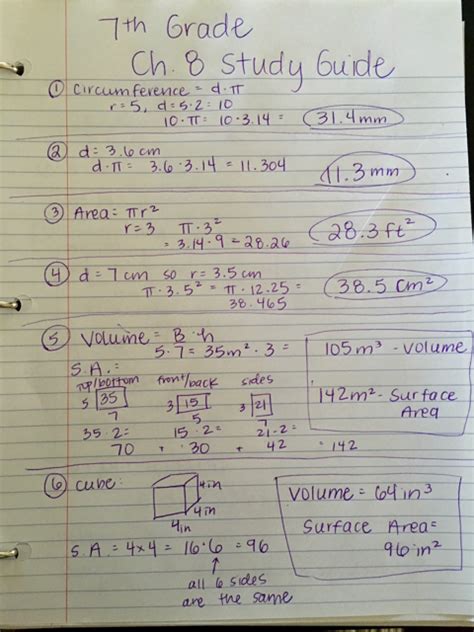 7th Grade
Ch. 8 Study Guide
① Circumference = d·π
r=5, d=5·2=10
10·π= 10·3.14 = 31.4mm
② d= 3.6 cm
d·π= 3.6·3.14 = 11.304
11.3mm
③ Area= πr²
r=3 π·3²
= 3.14·9=28.26
28.3 ft²
④ d=7cm so r=3.5cm
π·3.5² = π·12.25=
38.465
38.5 cm²
⑤ Volume = B·h
5·7=35m²·3=
105m³ - volume
142m² - Surface
Area
S.A.=
top/bottom front/back sides
5 35 3 15 3 21
7 5 7
35·2= 15·2= 21·2=
70 + 30 + 42 = 142
⑥ cube:
4in
4in
4in
S.A.= 4×4 = 16·6 = 96
all 6 sides
are the same
Volume = 64in³
Surface Area=
96in²